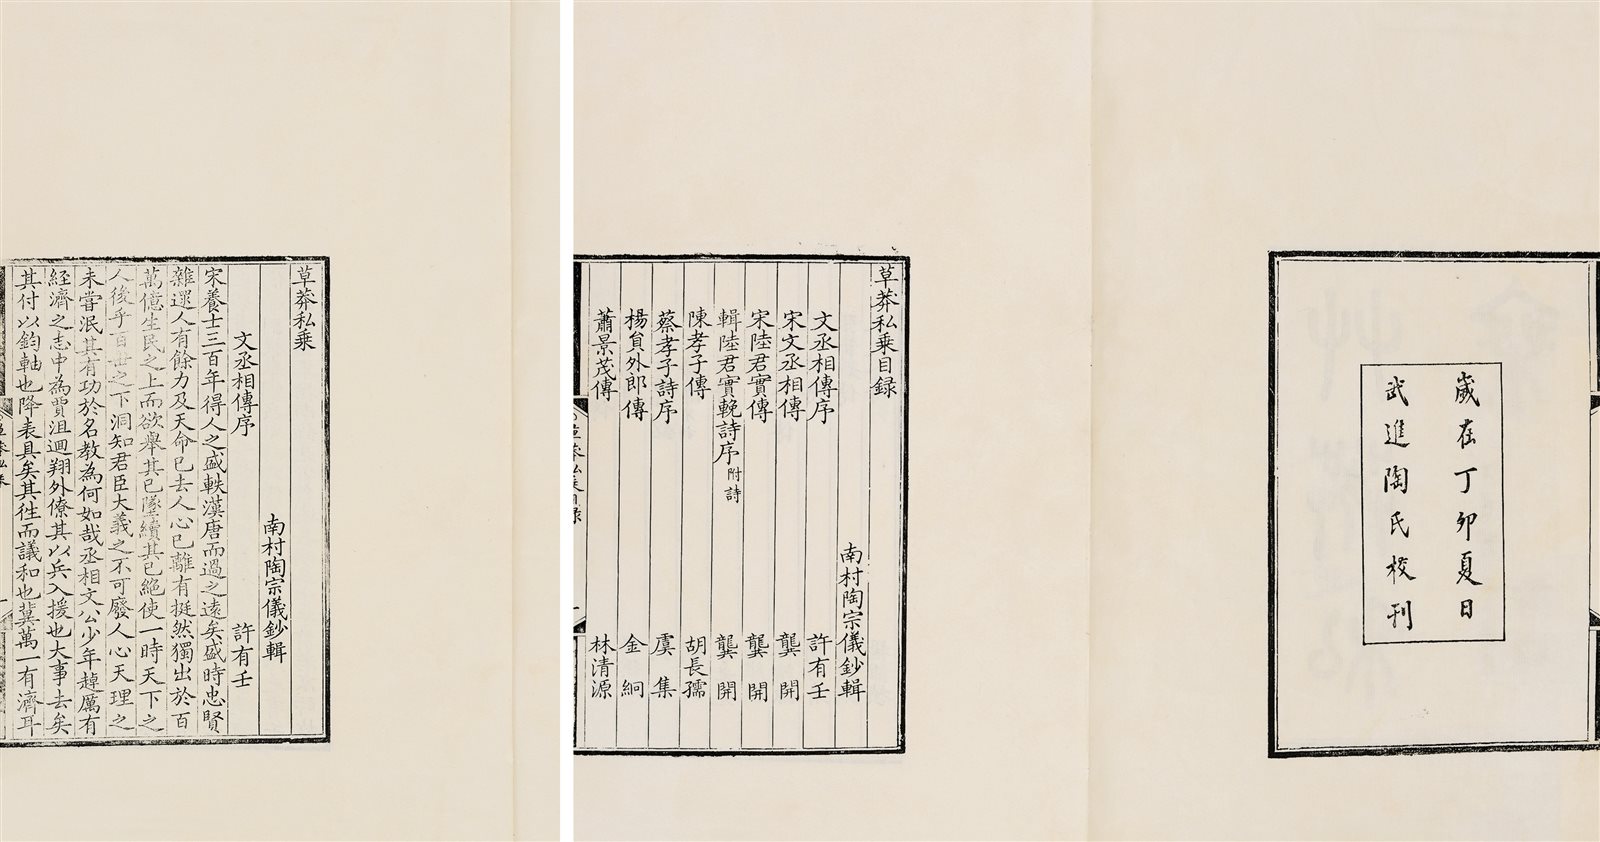 歲在丁卯夏日
武進陶氏校刊
草莽私乘目録
南村陶宗儀鈔輯
文丞相傳序 許有壬
宋文丞相傳 龔開
宋陸君實傳 龔開
輯陸君實輓詩序 附詩 龔開
陳孝子傳 胡長孺
蔡孝子詩序 虞集
楊負外郎傳 金絅
蕭景茂傳 林清源
草莽私乘
南村陶宗儀鈔輯
文丞相傳序 許有壬
宋養士三百年得人之盛軼漢唐而過之遠矣盛時忠賢
雜遝人有餘力及天命已去人心已離有挺然獨出於百
萬億生民之上而欲舉其已墜續其已絶使一時天下之
人後乎百世之下洞知君臣大義之不可廢人心天理之
未嘗泯其有功於名教為何如哉丞相文公少年趠厲有
経濟之志中為賈沮迴翔外僚其以兵入援也大事去矣
其付以鈞軸也降表具矣其徃而議和也冀萬一有濟耳